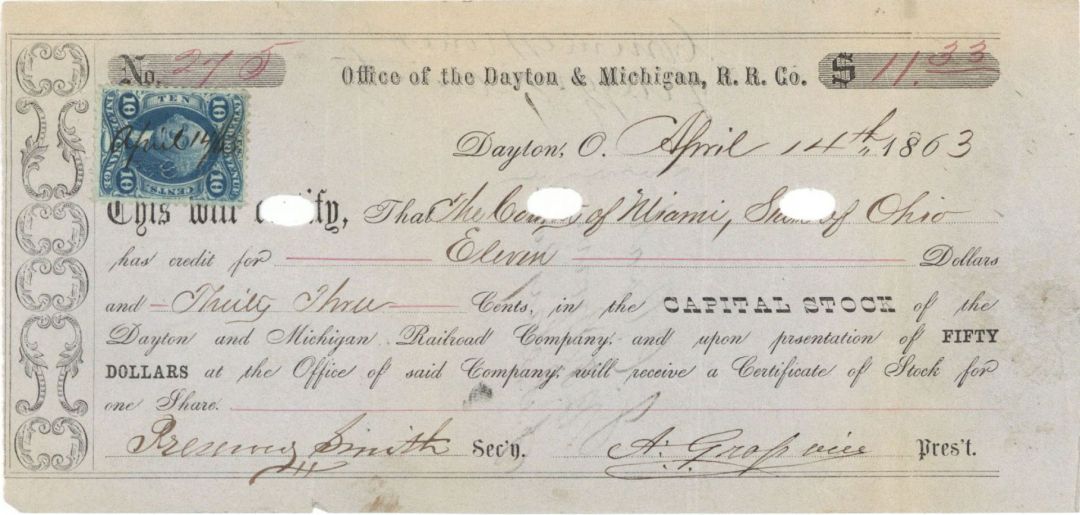 No. 275 Office of the Dayton & Michigan, R. R. Co. $ 11.33
10 TEN 10
INTER REVENUE
April 14/63
10 CENTS. 10
Dayton, O. April 14th, 1863
This will certify, That The County of Miami, State of Ohio
has credit for Eleven Dollars
and Thirty Three Cents, in the CAPITAL STOCK of the
Dayton and Michigan Railroad Company, and upon prsentation of FIFTY
DOLLARS at the Office of said Company, will receive a Certificate of Stock for
one Share.
Preserved Smith Sec'y. A. Gross vice Pres't.